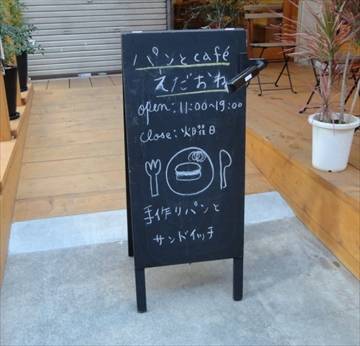 パンとcafé
えだおね
open: 11:00〜19:00
close: 火曜日
手作りパンと
サンドイッチ